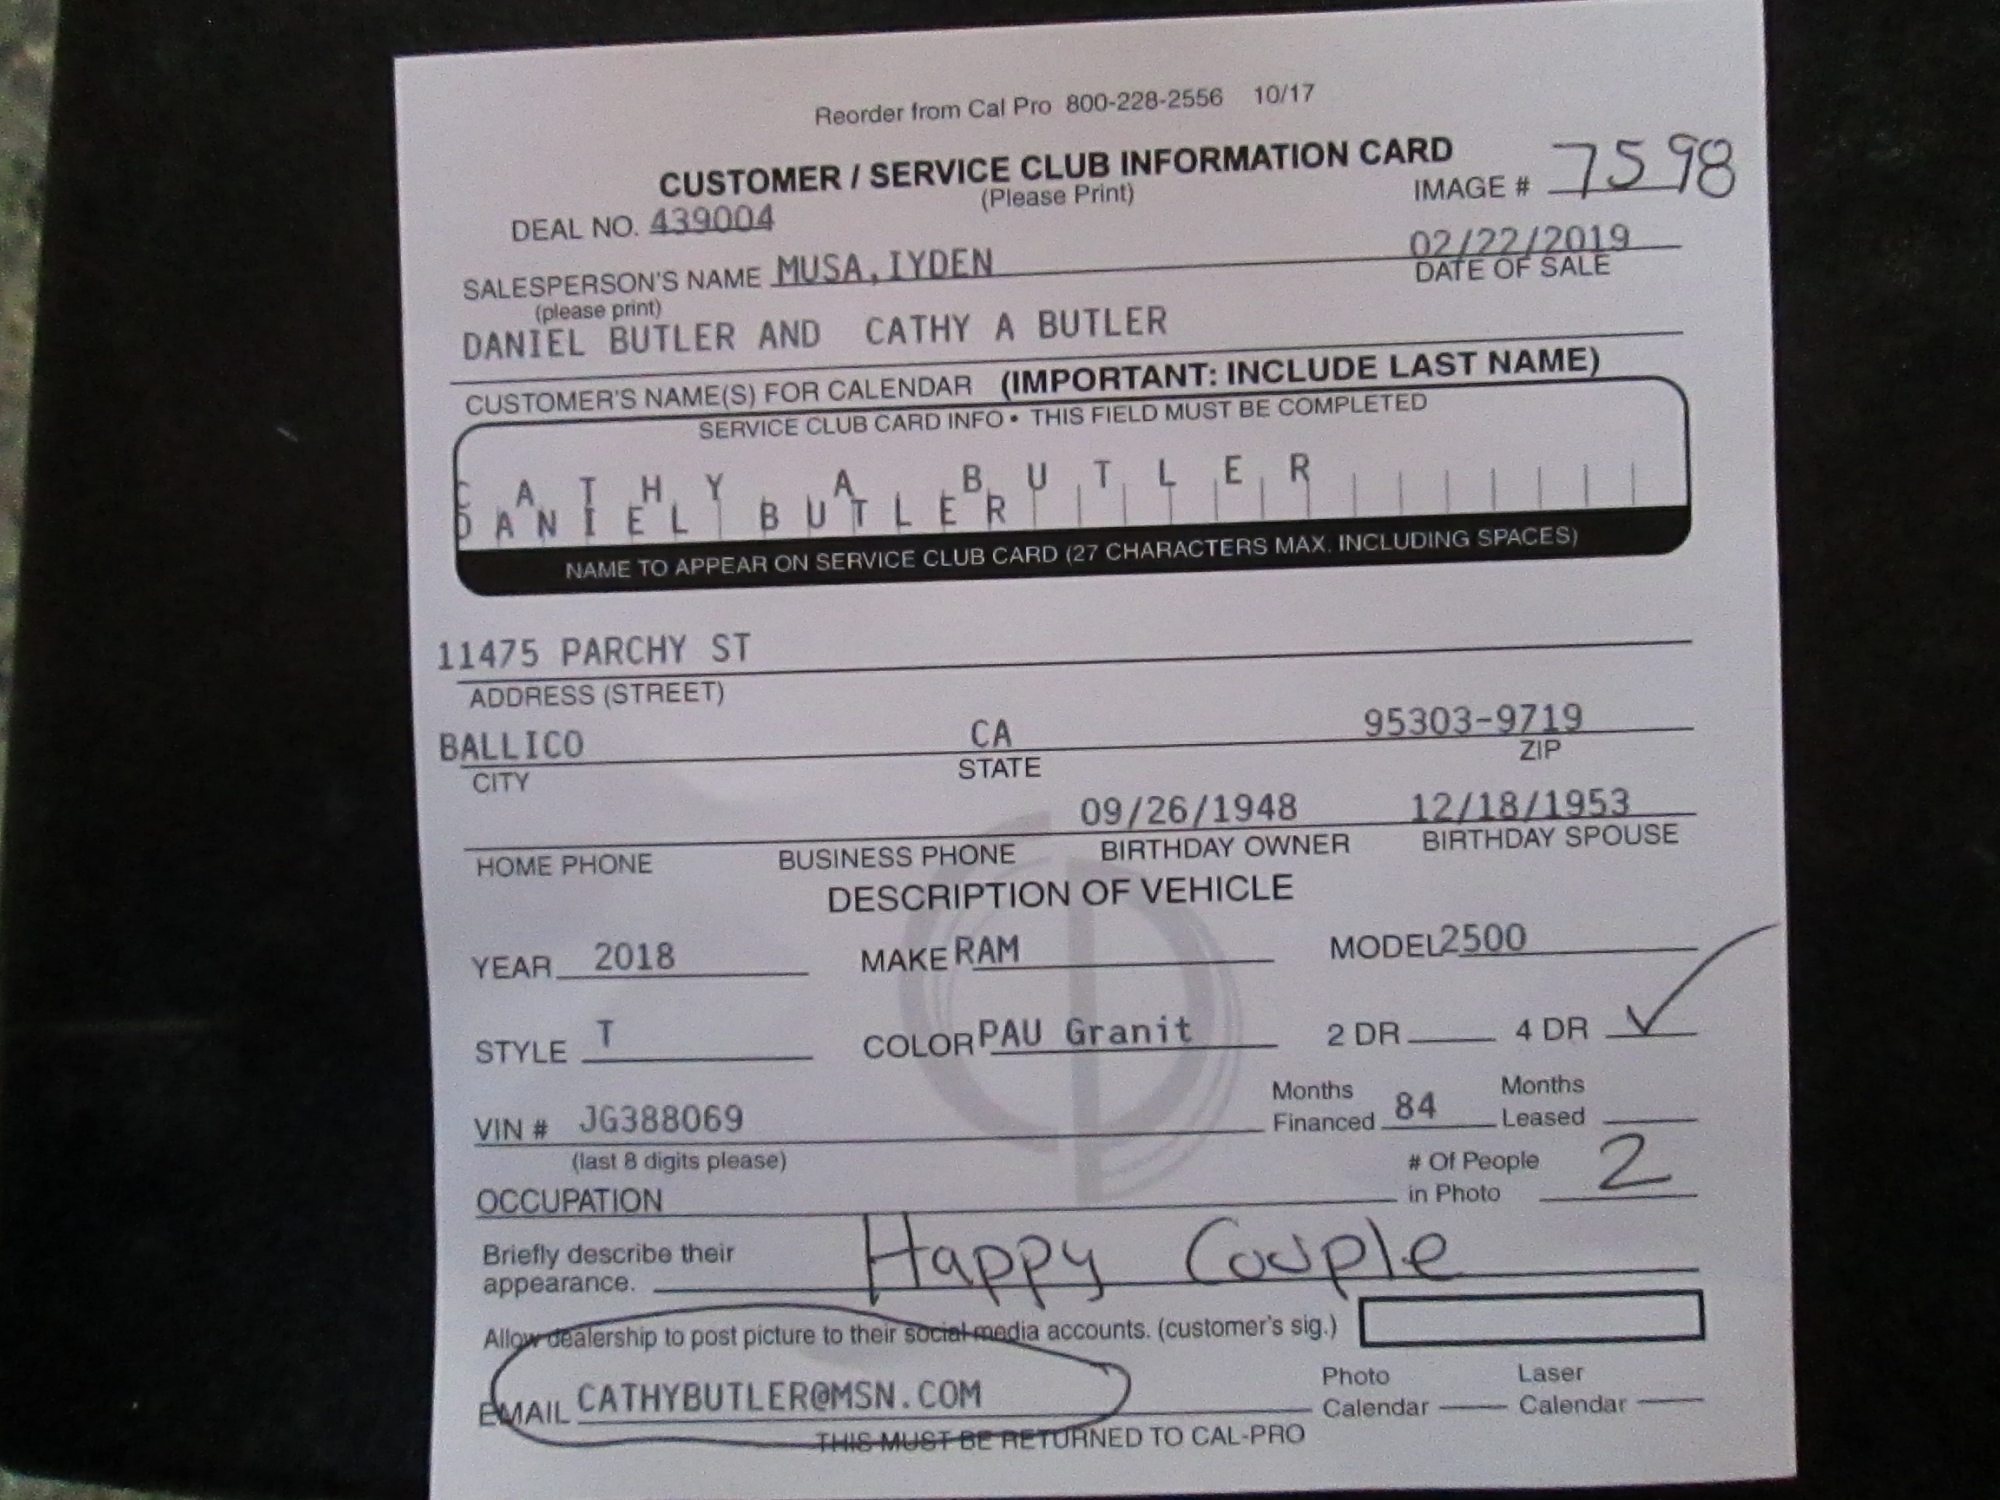 Reorder from Cal Pro 800-228-2556 10/17
CUSTOMER / SERVICE CLUB INFORMATION CARD
(Please Print)
IMAGE # 7598
DEAL NO. 439004
02/22/2019
SALESPERSON'S NAME MUSA, IYDEN
DATE OF SALE
(please print)
DANIEL BUTLER AND CATHY A BUTLER
CUSTOMER'S NAME(S) FOR CALENDAR (IMPORTANT: INCLUDE LAST NAME)
SERVICE CLUB CARD INFO • THIS FIELD MUST BE COMPLETED
CATHY A BUTLER
DANIEL BUTLER
NAME TO APPEAR ON SERVICE CLUB CARD (27 CHARACTERS MAX. INCLUDING SPACES)
11475 PARCHY ST
ADDRESS (STREET)
BALLICO CA 95303-9719
CITY STATE ZIP
09/26/1948 12/18/1953
HOME PHONE BUSINESS PHONE BIRTHDAY OWNER BIRTHDAY SPOUSE
DESCRIPTION OF VEHICLE
YEAR 2018 MAKE RAM MODEL 2500
STYLE T COLOR PAU Granit 2 DR 4 DR ✓
Months Months
VIN # JG388069 Financed 84 Leased
(last 8 digits please)
# Of People 2
OCCUPATION in Photo
Briefly describe their Happy Couple
appearance.
Allow dealership to post picture to their social media accounts. (customer's sig.)
Photo Laser
EMAIL CATHYBUTLER@MSN.COM Calendar Calendar
THIS MUST BE RETURNED TO CAL-PRO